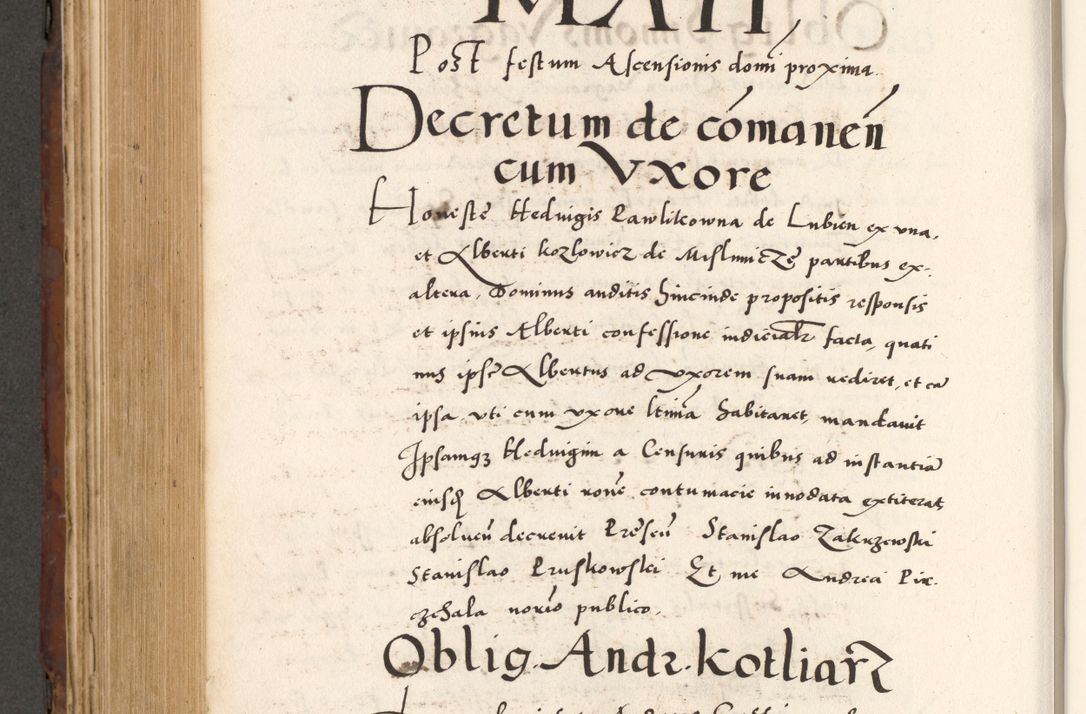 MAII
Post festum Ascensionis domi proxima.
Decretum de cōmanen̄
cum Vxore
Honestę Heduigis Pawlikowna de Lubien ex vna,
et Alberti kozlowicz de Mislimiczę partibus ex
altera, Dominus auditis hincinde propositis responsis
et ipsius Alberti confessione iudicialr facta, quati
nus ipse Albertus ad vxorem suam rediret, et cū
ipsa vti cum vxore ltima habitaret, mandauit
Ipsamqʒ Heduigim a Censuris quibus ad instantiā
eiusdem Alberti rone contumacie innodata extiterat
absoluen̄ decreuit Presen̄ Stanislao Zakrzewski
Stanislao Pruskowski Et me Andrea Pie
czchala notrio publico.
Oblig. Andr. kotliarz